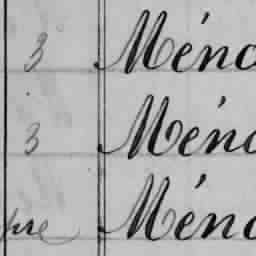 3 Ména
3 Ména
pre Ména